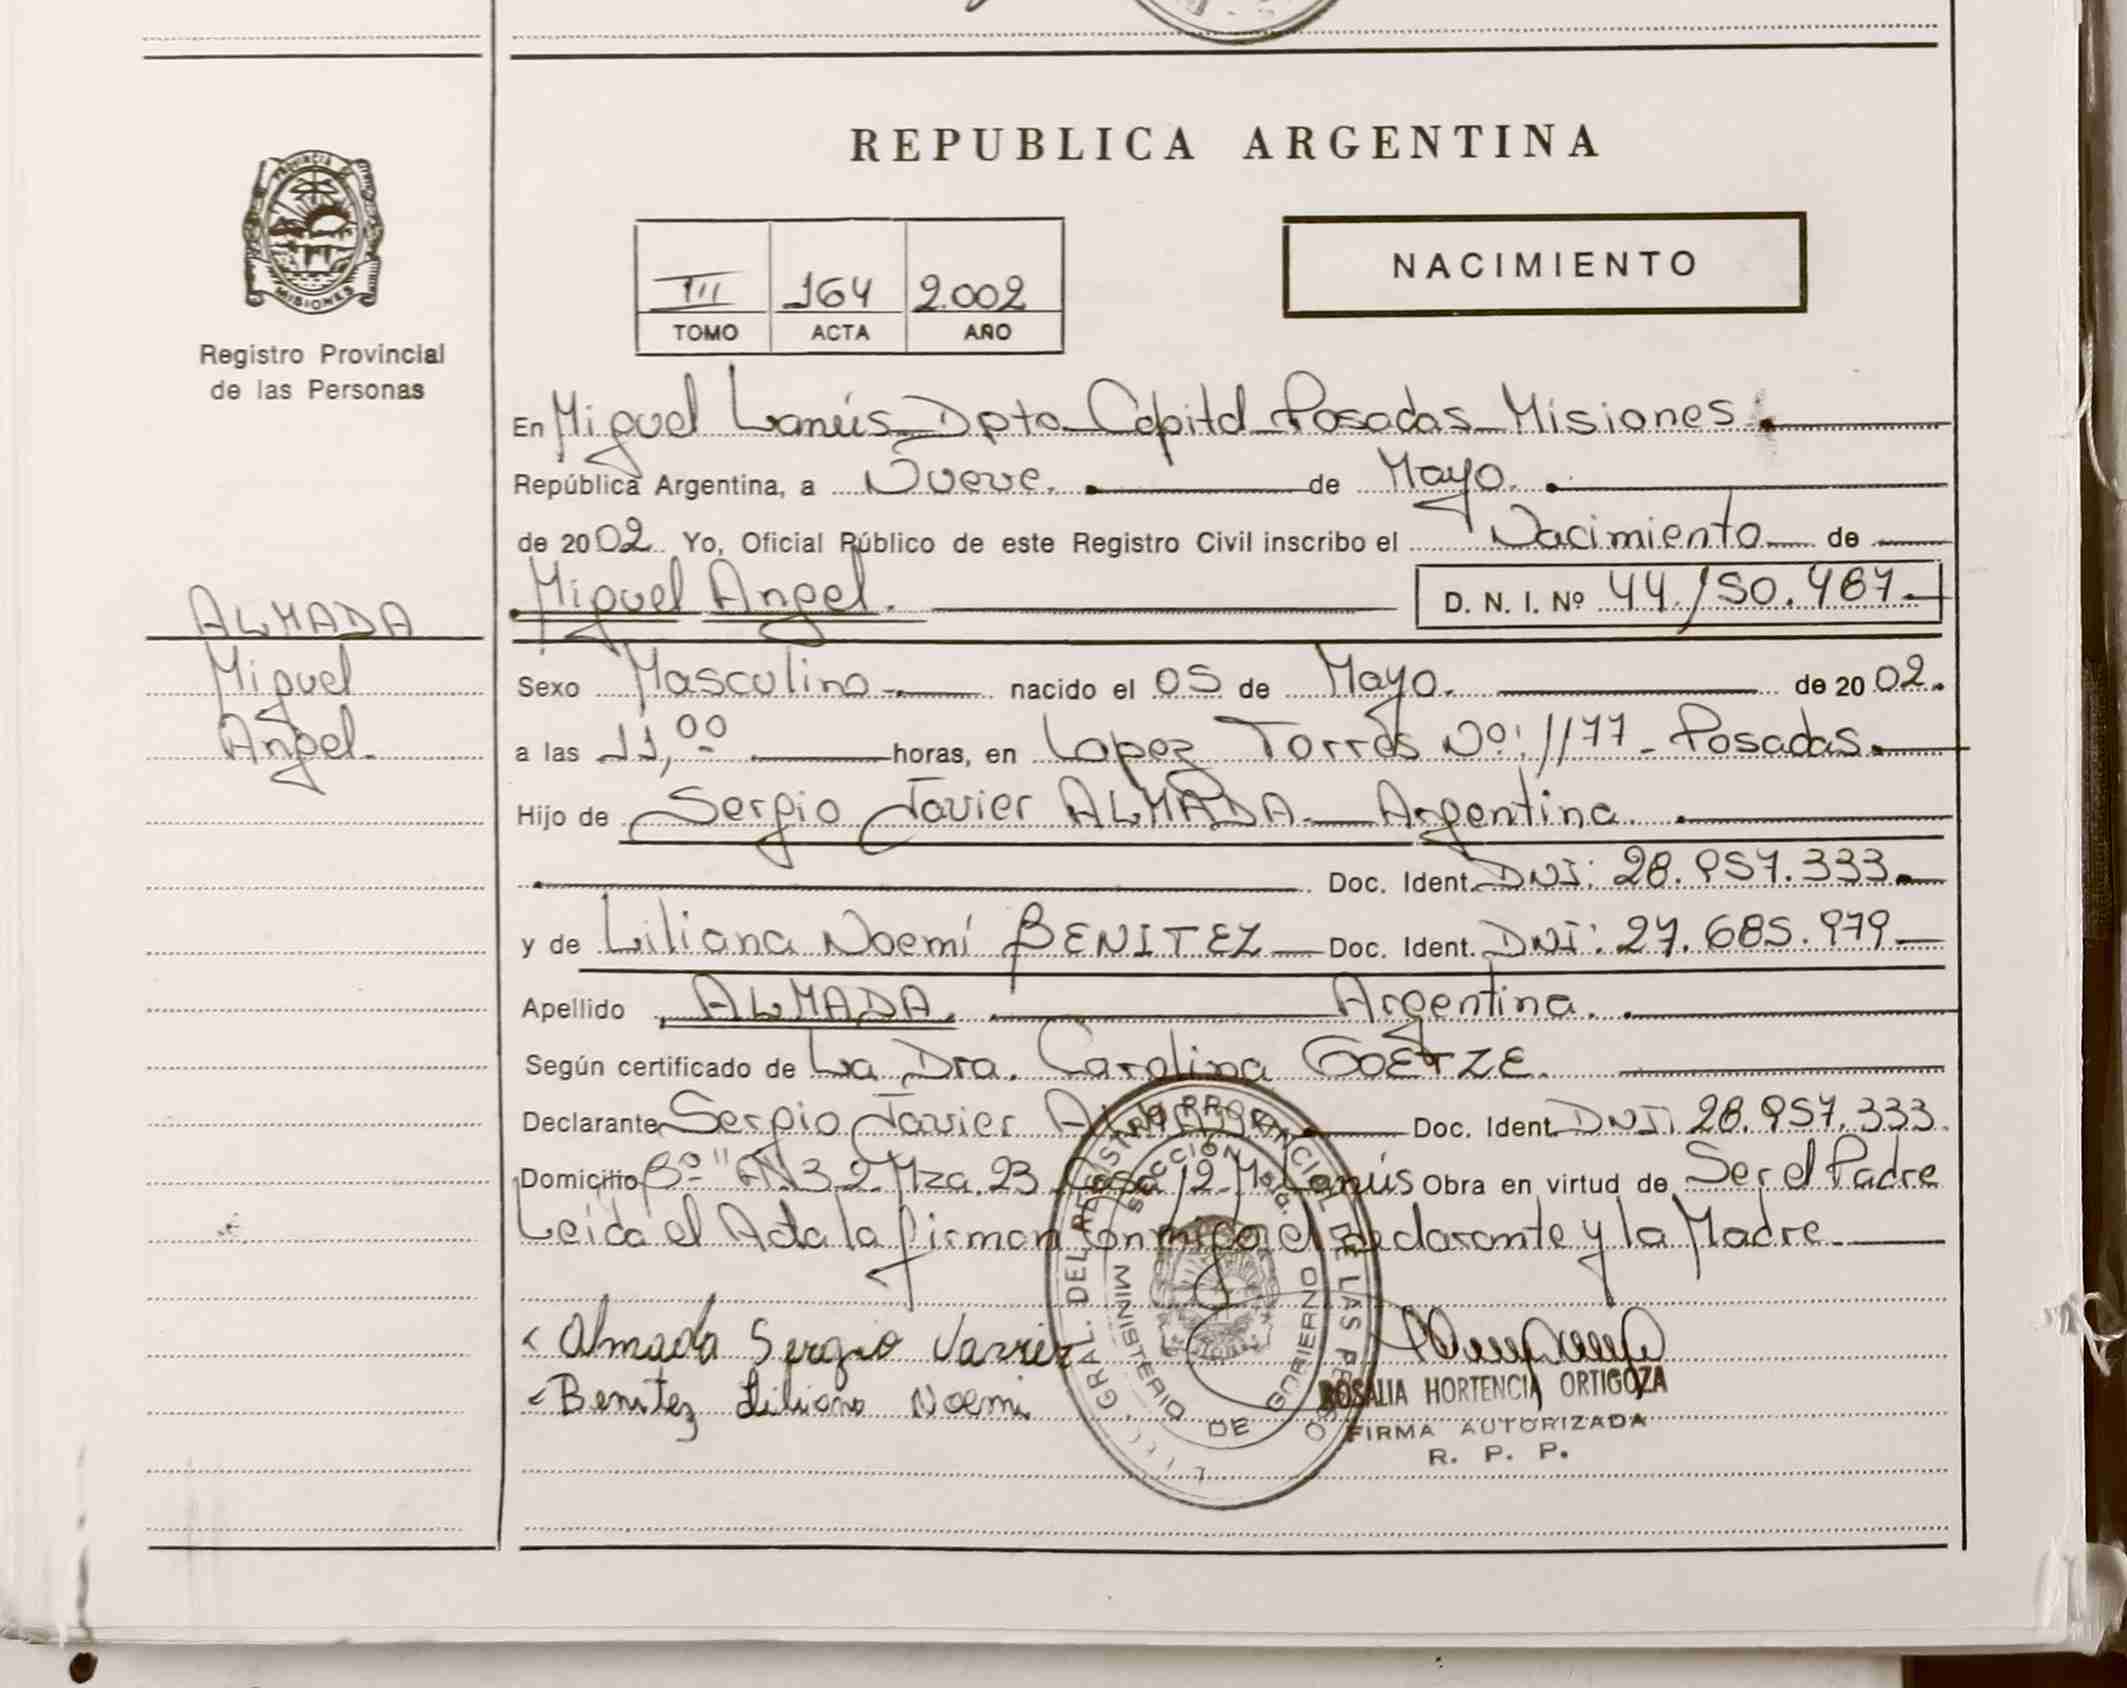 REPUBLICA ARGENTINA
PROVINCIA DE
MISIONES
Registro Provincial
de las Personas
III 164 2.002
TOMO ACTA AÑO
NACIMIENTO
En Miguel Lanús Dpto Capital Posadas Misiones
República Argentina, a Nueve. de Mayo.
de 2002 Yo, Oficial Público de este Registro Civil inscribo el Nacimiento de
Miguel Angel. D. N. I. Nº 44.150.467
ALMADA
Miguel
Angel.
Sexo Masculino nacido el 05 de Mayo. de 2002.
a las 11,00 horas, en Lopez Torres Nº: 1177 - Posadas.
Hijo de Sergio Javier ALMADA Argentina.
Doc. Ident. DNI: 28.957.333.
y de Liliana Noemí BENITEZ Doc. Ident. DNI: 27.685.979
Apellido ALMADA. Argentina.
Según certificado de La Dra. Carolina GOETZE.
Declarante Sergio Javier Doc. Ident. DNI: 28.957.333.
Domicilio Bº 32 Mza. 23 Casa 12 M. Lanús Obra en virtud de Ser el Padre
Leída el Acta la firman conmigo el declarante y la Madre
Almada Sergio Javier
Benitez Liliana Noemi
GRAL. DEL REGISTRO PROVINCIAL DE LAS
MINISTERIO DE GOBIERNO
ROSALIA HORTENCIA ORTIGOZA
FIRMA AUTORIZADA
R. P. P.